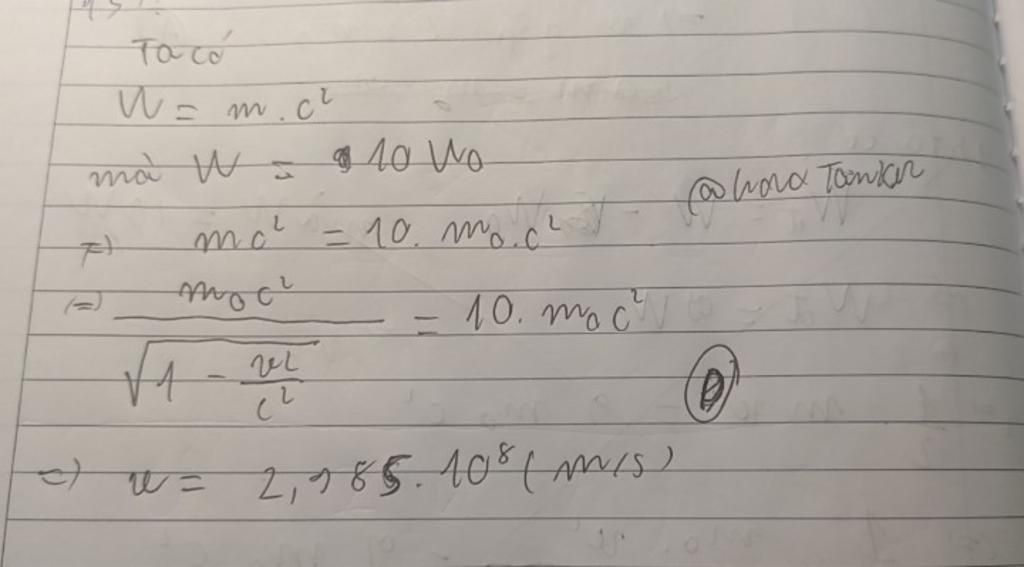 Ta có
W = m.c²
mà W = 10 W₀
@hora Tamkin
=> mc² = 10. m₀.c²
(=) m₀c² / √(1 - v²/c²) = 10. m₀c²
D
=) v = 2,985.10⁸ (m/s)